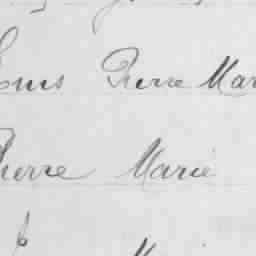 Louis Pierre Mar
Pierre Marie